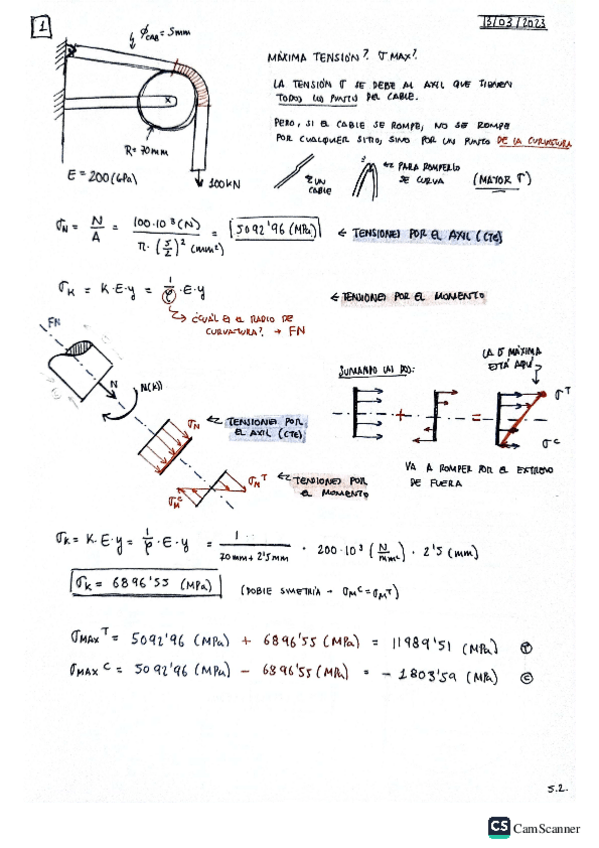 1
13/03/2023
φCAB = 5mm
MÁXIMA TENSIÓN? σ MAX?
LA TENSIÓN σ SE DEBE AL AXIL QUE TIENEN
TODOS LOS PUNTOS DEL CABLE.
PERO, SI EL CABLE SE ROMPE, NO SE ROMPE
POR CUALQUIER SITIO, SINO POR UN PUNTO DE LA CURVATURA
R=70mm
E=200(GPa)
100KN
UN CABLE
PARA ROMPERLO SE CURVA
(MAYOR σ)
σN = N/A = 100·10³(N) / π·(5/2)² (mm²) = 5092'96(MPa) ← TENSIONES POR EL AXIL (CTE)
σK = K·E·y = 1/ρ·E·y ← TENSIONES POR EL MOMENTO
¿CUÁL ES EL RADIO DE
CURVATURA? → FN
FN
N
σN
← TENSIONES POR
EL AXIL (CTE)
σMC
σMT
← TENSIONES POR
EL MOMENTO
SUMANDO LAS DOS:
LA σ MÁXIMA
ESTÁ AQUÍ
+
=
σT
σC
VA A ROMPER POR EL EXTREMO
DE FUERA
σK = K·E·y = 1/ρ·E·y = 1 / 70mm+2'5mm · 200·10³ (N/mm²) · 2'5 (mm)
σK = 6896'55 (MPa) (DOBLE SIMETRÍA → σMC = σMT)
σMAX T = 5092'96 (MPa) + 6896'55 (MPa) = 11989'51 (MPa) T
σMAX C = 5092'96 (MPa) - 6896'55 (MPa) = -1803'59 (MPa) C
5.2.
CS CamScanner